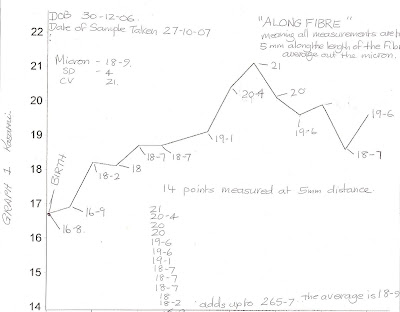 DOB 30-12-06.
Date of Sample Taken 27-10-07
"ALONG FIBRE"
meaning all measurements are
5 mm along the length of the Fib
average out the micron.
22
21
20
19
18
17
16
15
14
Micron - 18-9.
SD - 4.
CV 21.
GRAPH 1. 
BIRTH
16-8.
16-9
18-2
18
18-7
18-7
19-1
20-4
21
20
19-6
18-7
19-6
14 points measured at 5mm distance.
21
20-4
20
20
19-6
19-6
19-1
18-7
18-7
18-7
18
18-2
adds up to 265-7. The average is 18-9